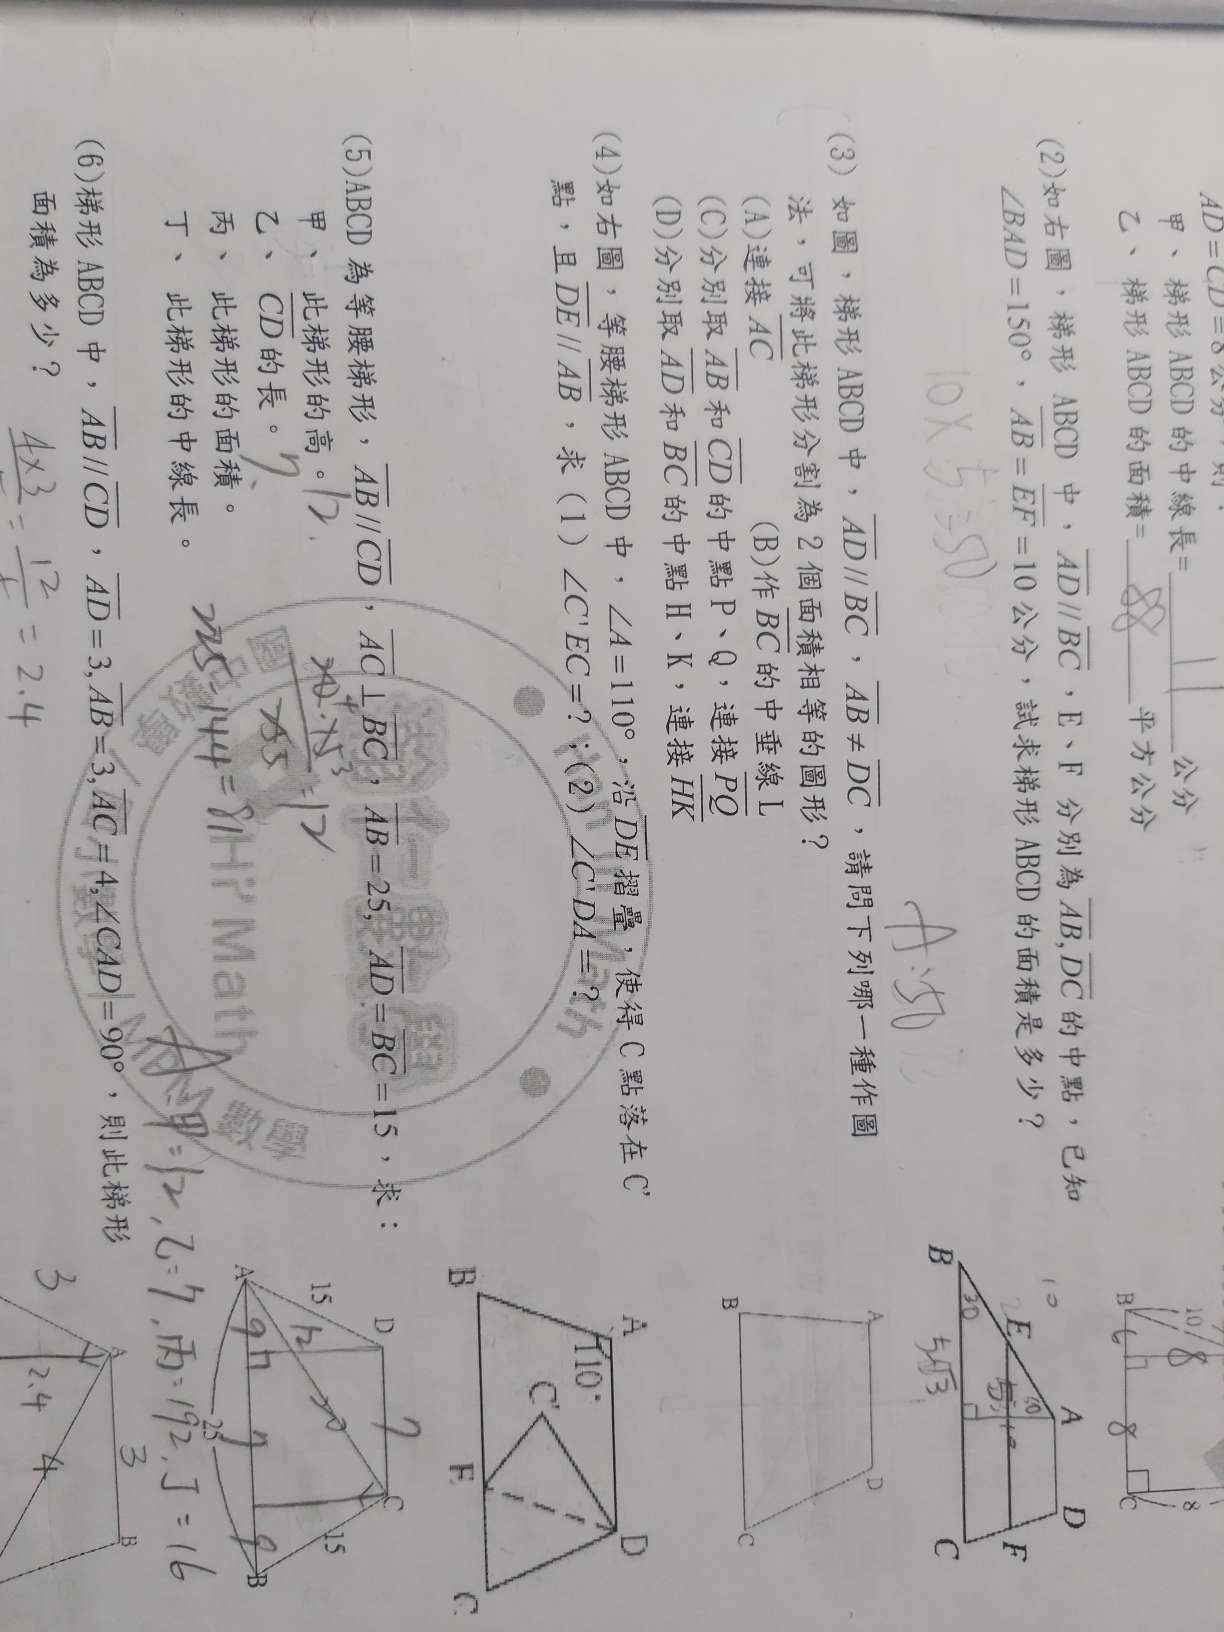 AD=CD=8公分，則：
甲、梯形ABCD的中線長=11公分
乙、梯形ABCD的面積=88平方公分
(2)如右圖，梯形 ABCD 中，AD//BC，E、F 分別為AB,DC的中點，已知
∠BAD=150°，AB=EF=10公分，試求梯形ABCD的面積是多少？
10×5=50
A:50
(3) 如圖，梯形ABCD中，AD//BC，AB≠DC，請問下列哪一種作圖
法，可將此梯形分割為2個面積相等的圖形？
(A)連接AC (B)作BC的中垂線L
(C)分別取AB和CD的中點P、Q，連接PQ
(D)分別取AD和BC的中點H、K，連接HK
(4)如右圖，等腰梯形ABCD中，∠A=110°，沿DE摺疊，使得C點落在C'
點，且DE//AB，求(1) ∠C'EC=？;(2) ∠C'DA=？
(5)ABCD為等腰梯形，AB//CD，AC⊥BC，AB=25, AD=BC=15，求：
甲、 此梯形的高。12
乙、 CD的長。7
丙、 此梯形的面積。
丁、 此梯形的中線長。
=12
225-144=81
A:甲=12,乙=7,丙=192,丁=16
(6)梯形ABCD中，AB//CD，AD=3,AB=3,AC=4,∠CAD=90°，則此梯形
面積為多少？
4×3
=
12
= 2.4
B
10
8
6
8
C
8
B
30
E
A
D
F
C
5√3
10
A
B
D
C
A
110°
B
C'
E
D
C
A
15
D
12
20
7
C
15
9
7
9
B
25
3
A
2.4
4
3
B
Han Lin Math
HI! Math